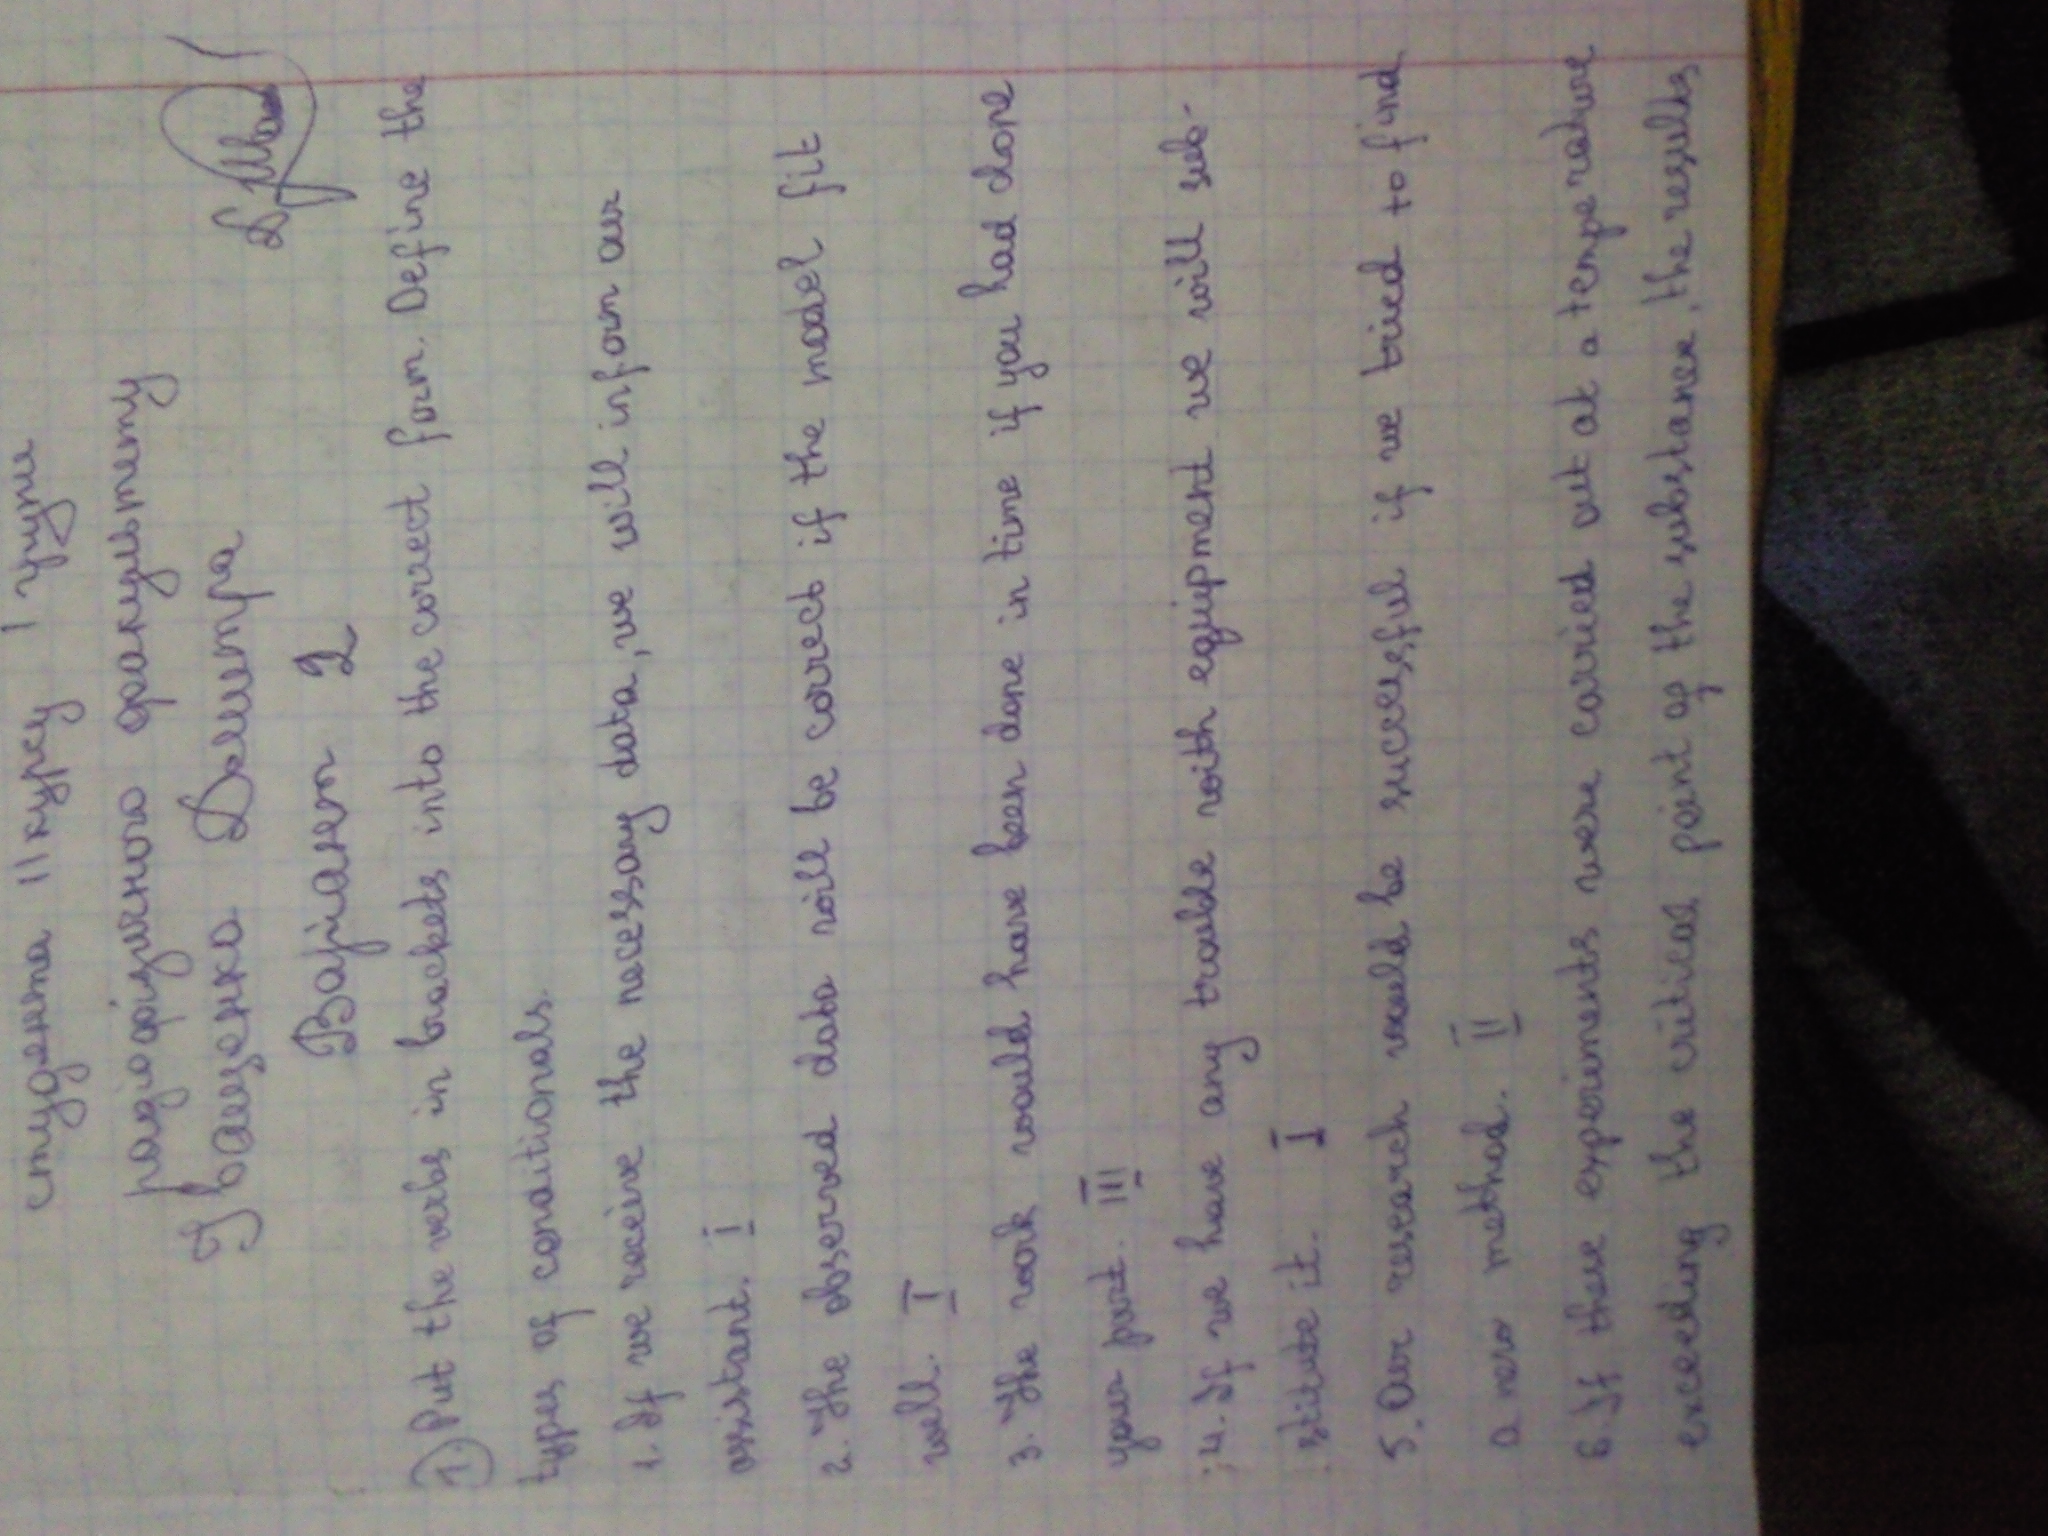 студента II курсу 1 групи
радіофізичного факультету
Іващенко Дмитра
Варіант 2
1. Put the verbs in brackets into the correct form. Define the
types of conditionals.
1. If we receive the necessary data, we will inform our
assistant. I
2. The observed data will be correct if the model fit
well. I
3. The work would have been done in time if you had done
your part. III
4. If we have any trouble with equipment we will sub-
stitute it. I
5. Our research would be successful if we tried to find
a new method. II
6. If these experiments were carried out at a temperature
exceeding the critical point of the substance, the results